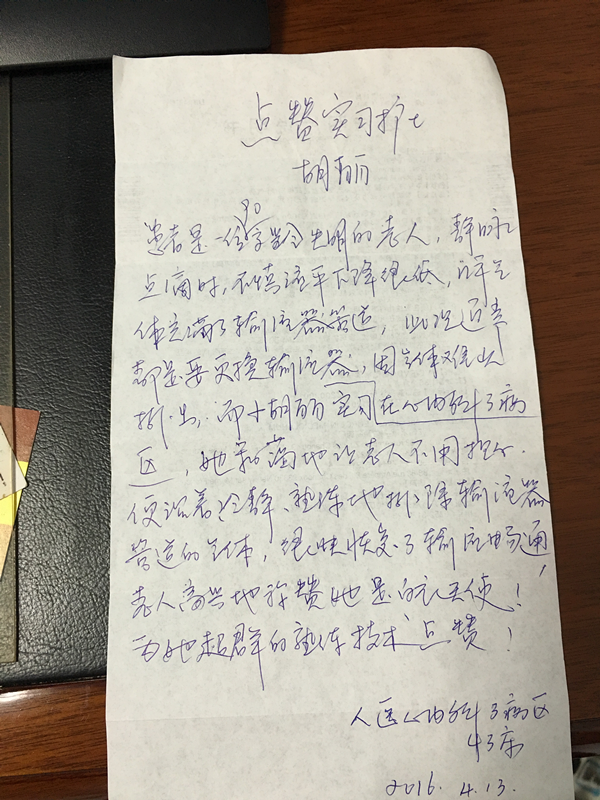 点赞实习护士
胡丽
90
患者是一位高龄失明的老人，静脉
点滴时，不慎液平下降很低，许多气
体充满了输液器管道，此况通常
都是要更换输液器，因气体难以
排出，而小胡丽实习在心内科3病
区，她和蔼地让老人不用担心.
便沉着冷静、熟练地排除输液器
管道的气体，很快恢复了输液畅通，
老人高兴地称赞她是白衣天使！
为她超群的熟练技术点赞！
人医心内科3病区
43床
2016.4.13.